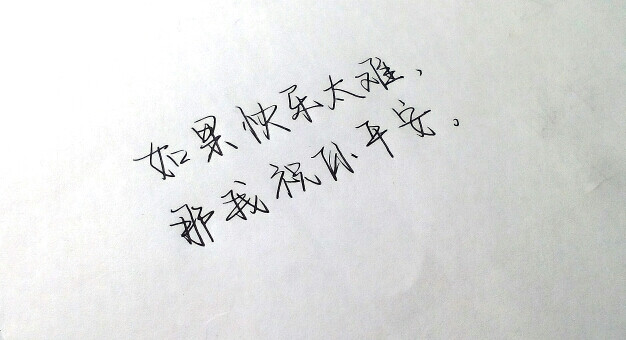 如果快乐太难、
那我祝你平安。